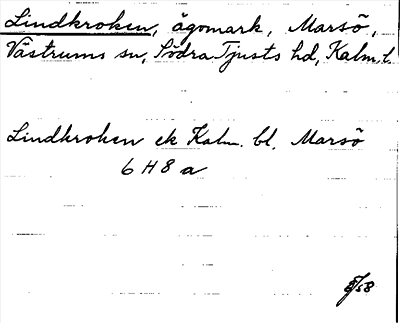 Lindkroken, ägomark, Marsö,
Västrums sn, Södra Tjusts hd, Kalm. l.
Lindkroken ek Kalm. bl. Marsö
6 H 8 a